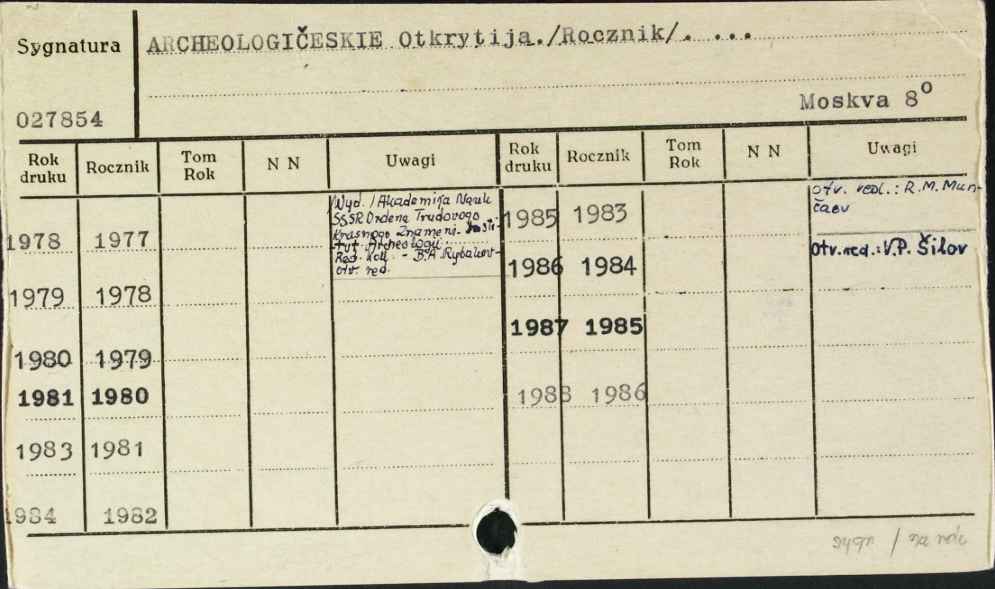 Sygnatura
ARCHEOLOGIČESKIE Otkrytija./Rocznik/. ...
027854
Moskva 8⁰
Rok druku Rocznik Tom Rok N N Uwagi Rok druku Rocznik Tom Rok N N Uwagi
Wyd. /Akademija Nauk
SSSR Ordena Trudovogo
Krasnogo Znameni. Insti-
tut Archeologii.
Red. koll. - B.A. Rybakov-
otv. red.
1978 1977
1979 1978
1980 1979
1981 1980
1983 1981
1984 1982
1985 1983
otv. red.: R.M. Mun-
čaev
1986 1984
Otv.red.: V.P. Šilov
1987 1985
1988 1986
sygn / na rok